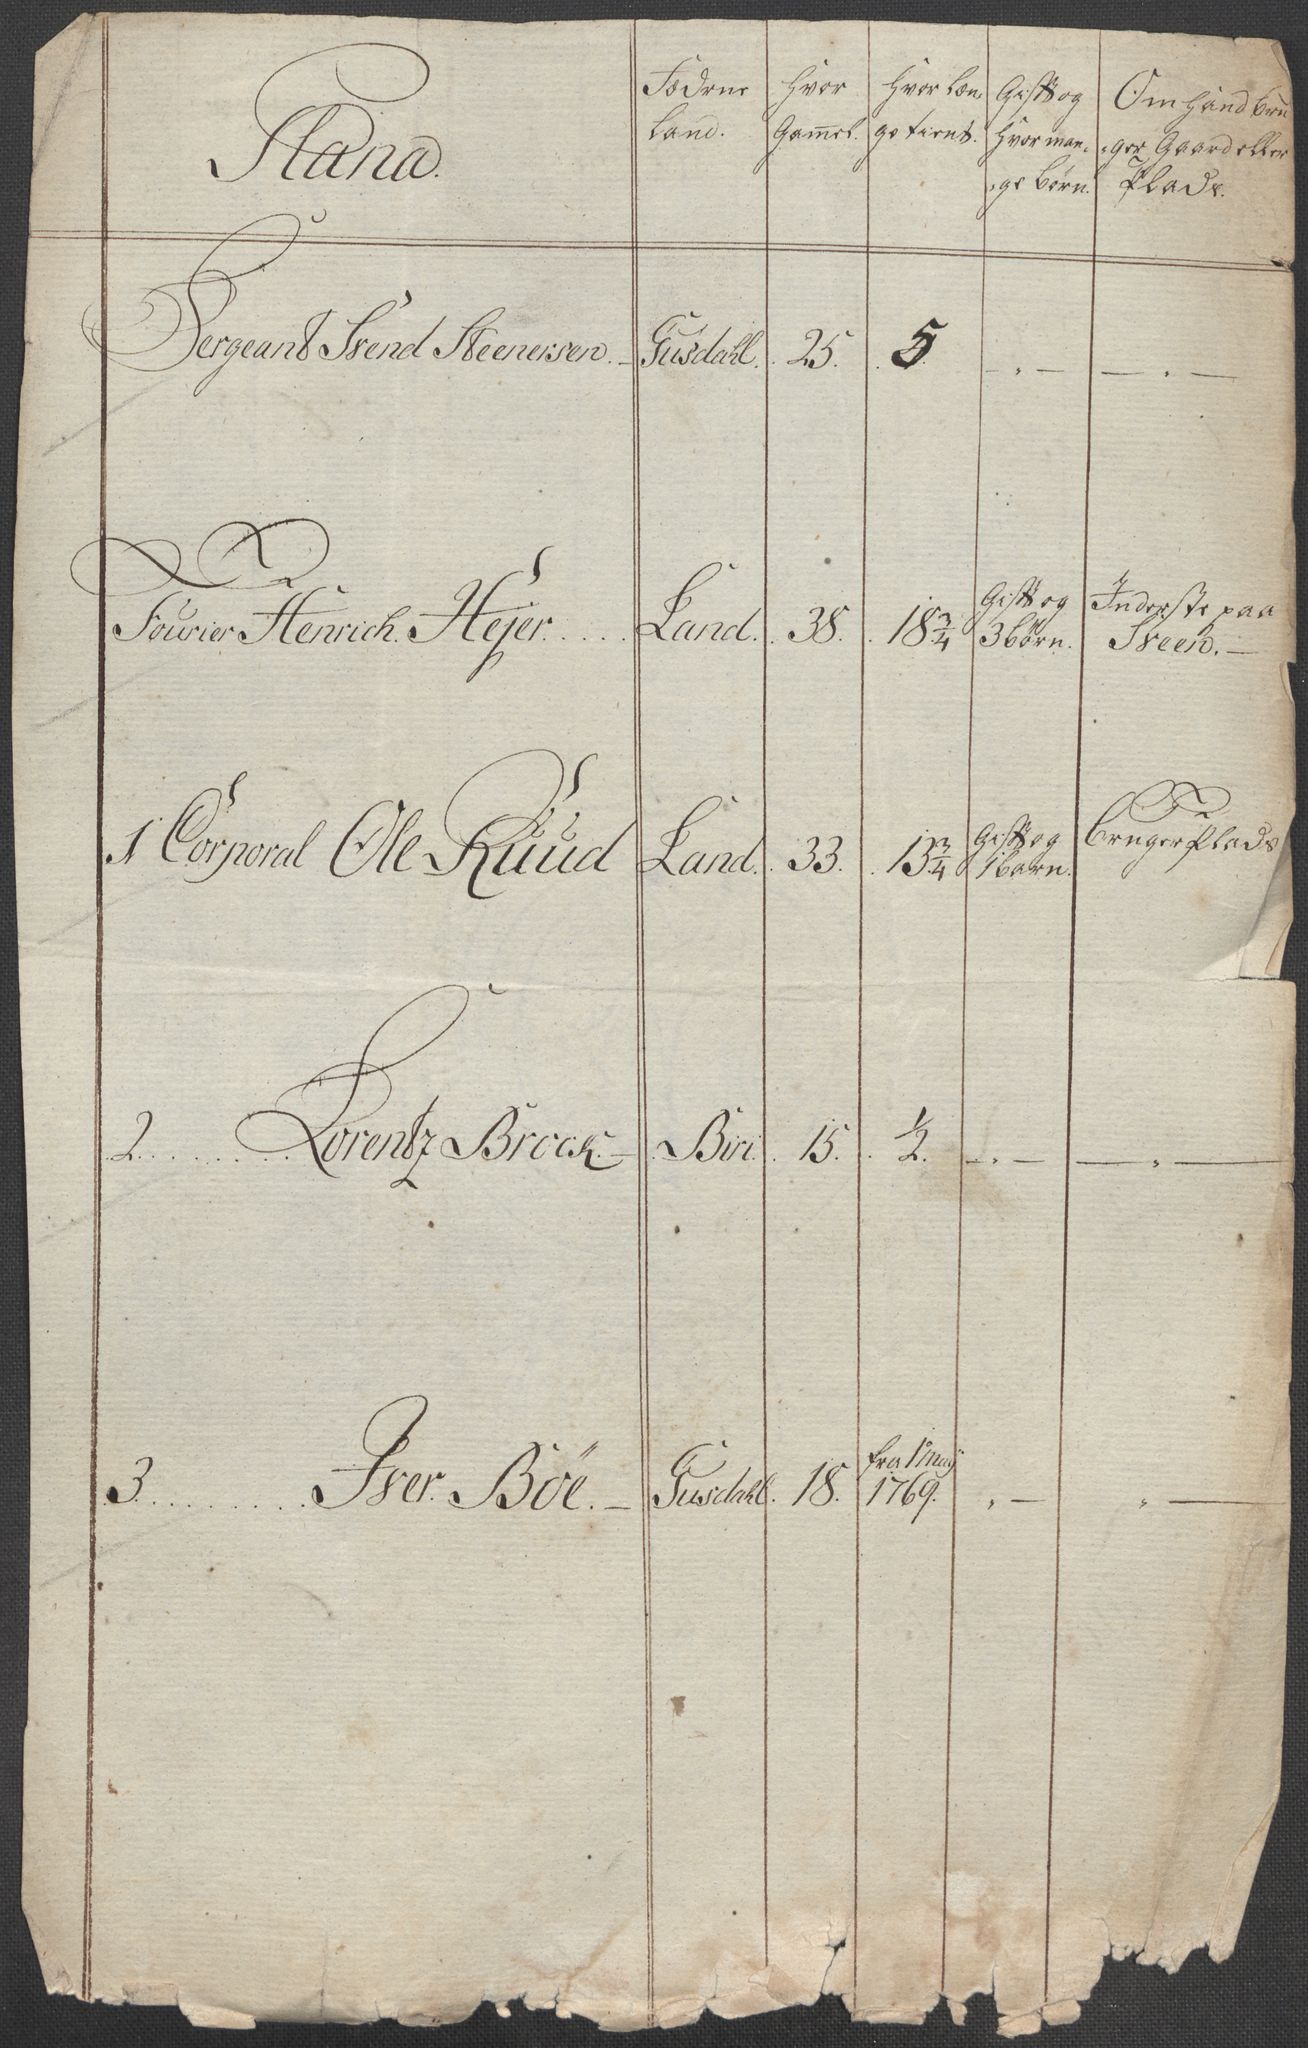 Stana.
Fødene Land.
Hvor Gammel.
Hvor læn- ge tient.
Gift og Hvor man- ge børn.
Om hand bru- ger Gaard eller Plads.
Sergeant Svend Steenersen. Gusdahl. 25. 5. — " — — " —
Fourier Henrich Hejer. Land. 38. 18 3/4 Gift og 3 børn. Inderste paa Sveen. —
1 Corporal Ole Ruud Land. 33. 13 3/4 Gift og 1 barn. bruger Plads
2. Lorentz Brock. Biri. 15. 1/2. — " — — " —
3. Iver Böe. Gusdahl. 18. fra 1 may 1769. " — " —